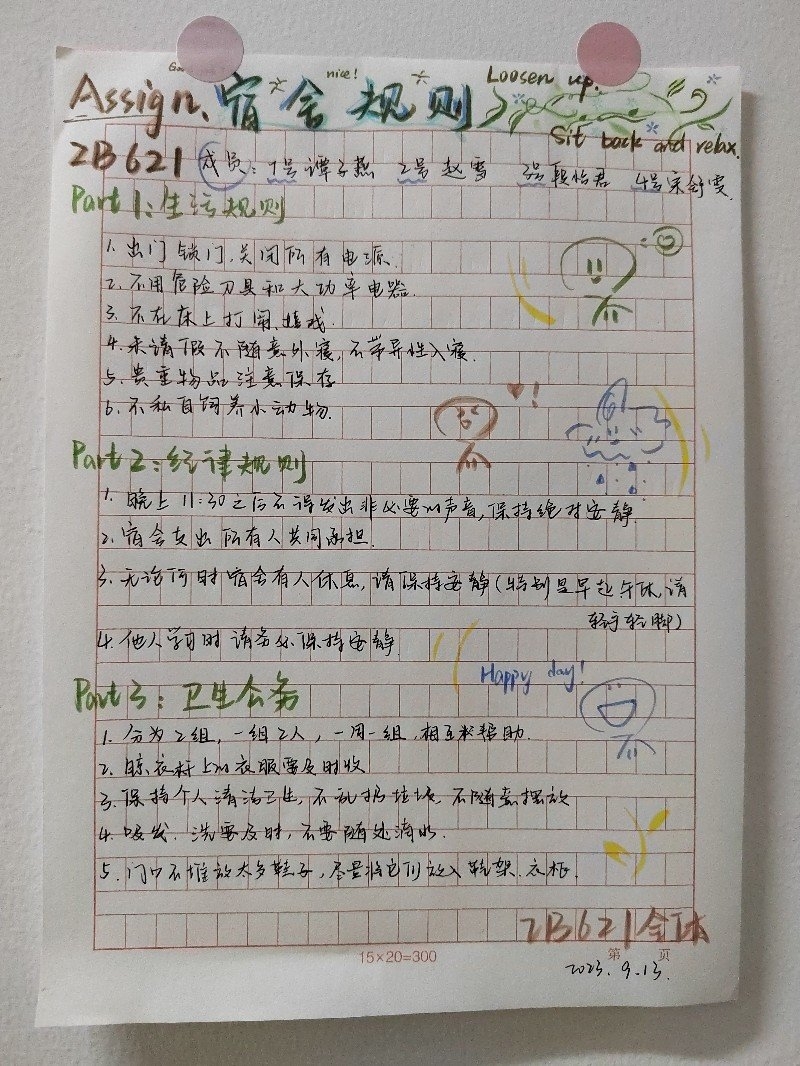 nice!
Loosen up.
Assign. 宿舍规则
Sit back and relax.
2B621 成员：1号谭子燕 2号赵雪 3号段怡君 4号宋舒雯
Part 1：生活规则
1. 出门锁门，关闭所有电源.
2. 不用危险刀具和大功率电器.
3. 不在床上打闹、嬉戏.
4. 未请假不随意外寝，不带异性入寝.
5. 贵重物品注意保存
6. 不私自饲养小动物.
Part 2：纪律规则
1. 晚上11:30之后不得发出非必要的声音，保持绝对安静.
2. 宿舍支出所有人共同承担.
3. 无论何时宿舍有人休息，请保持安静（特别是早起午休，请
轻手轻脚）
4. 他人学习时请务必保持安静
Happy day!
Part 3：卫生公务
1. 分为2组，一组2人，一周一组，相互帮助.
2. 晾衣杆上的衣服要及时收
3. 保持个人清洁卫生，不乱扔垃圾，不随意摆放
4. 吸发、洗要及时，不要随处滴水.
5. 门口不堆放太多鞋子，尽量将它们放入鞋架、衣柜.
2B621全体
15×20=300
第 页
2023.9.13.